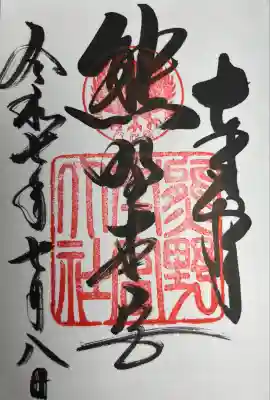 奉拝
熊野本宮
令和七年七月八日
熊野本宮大社